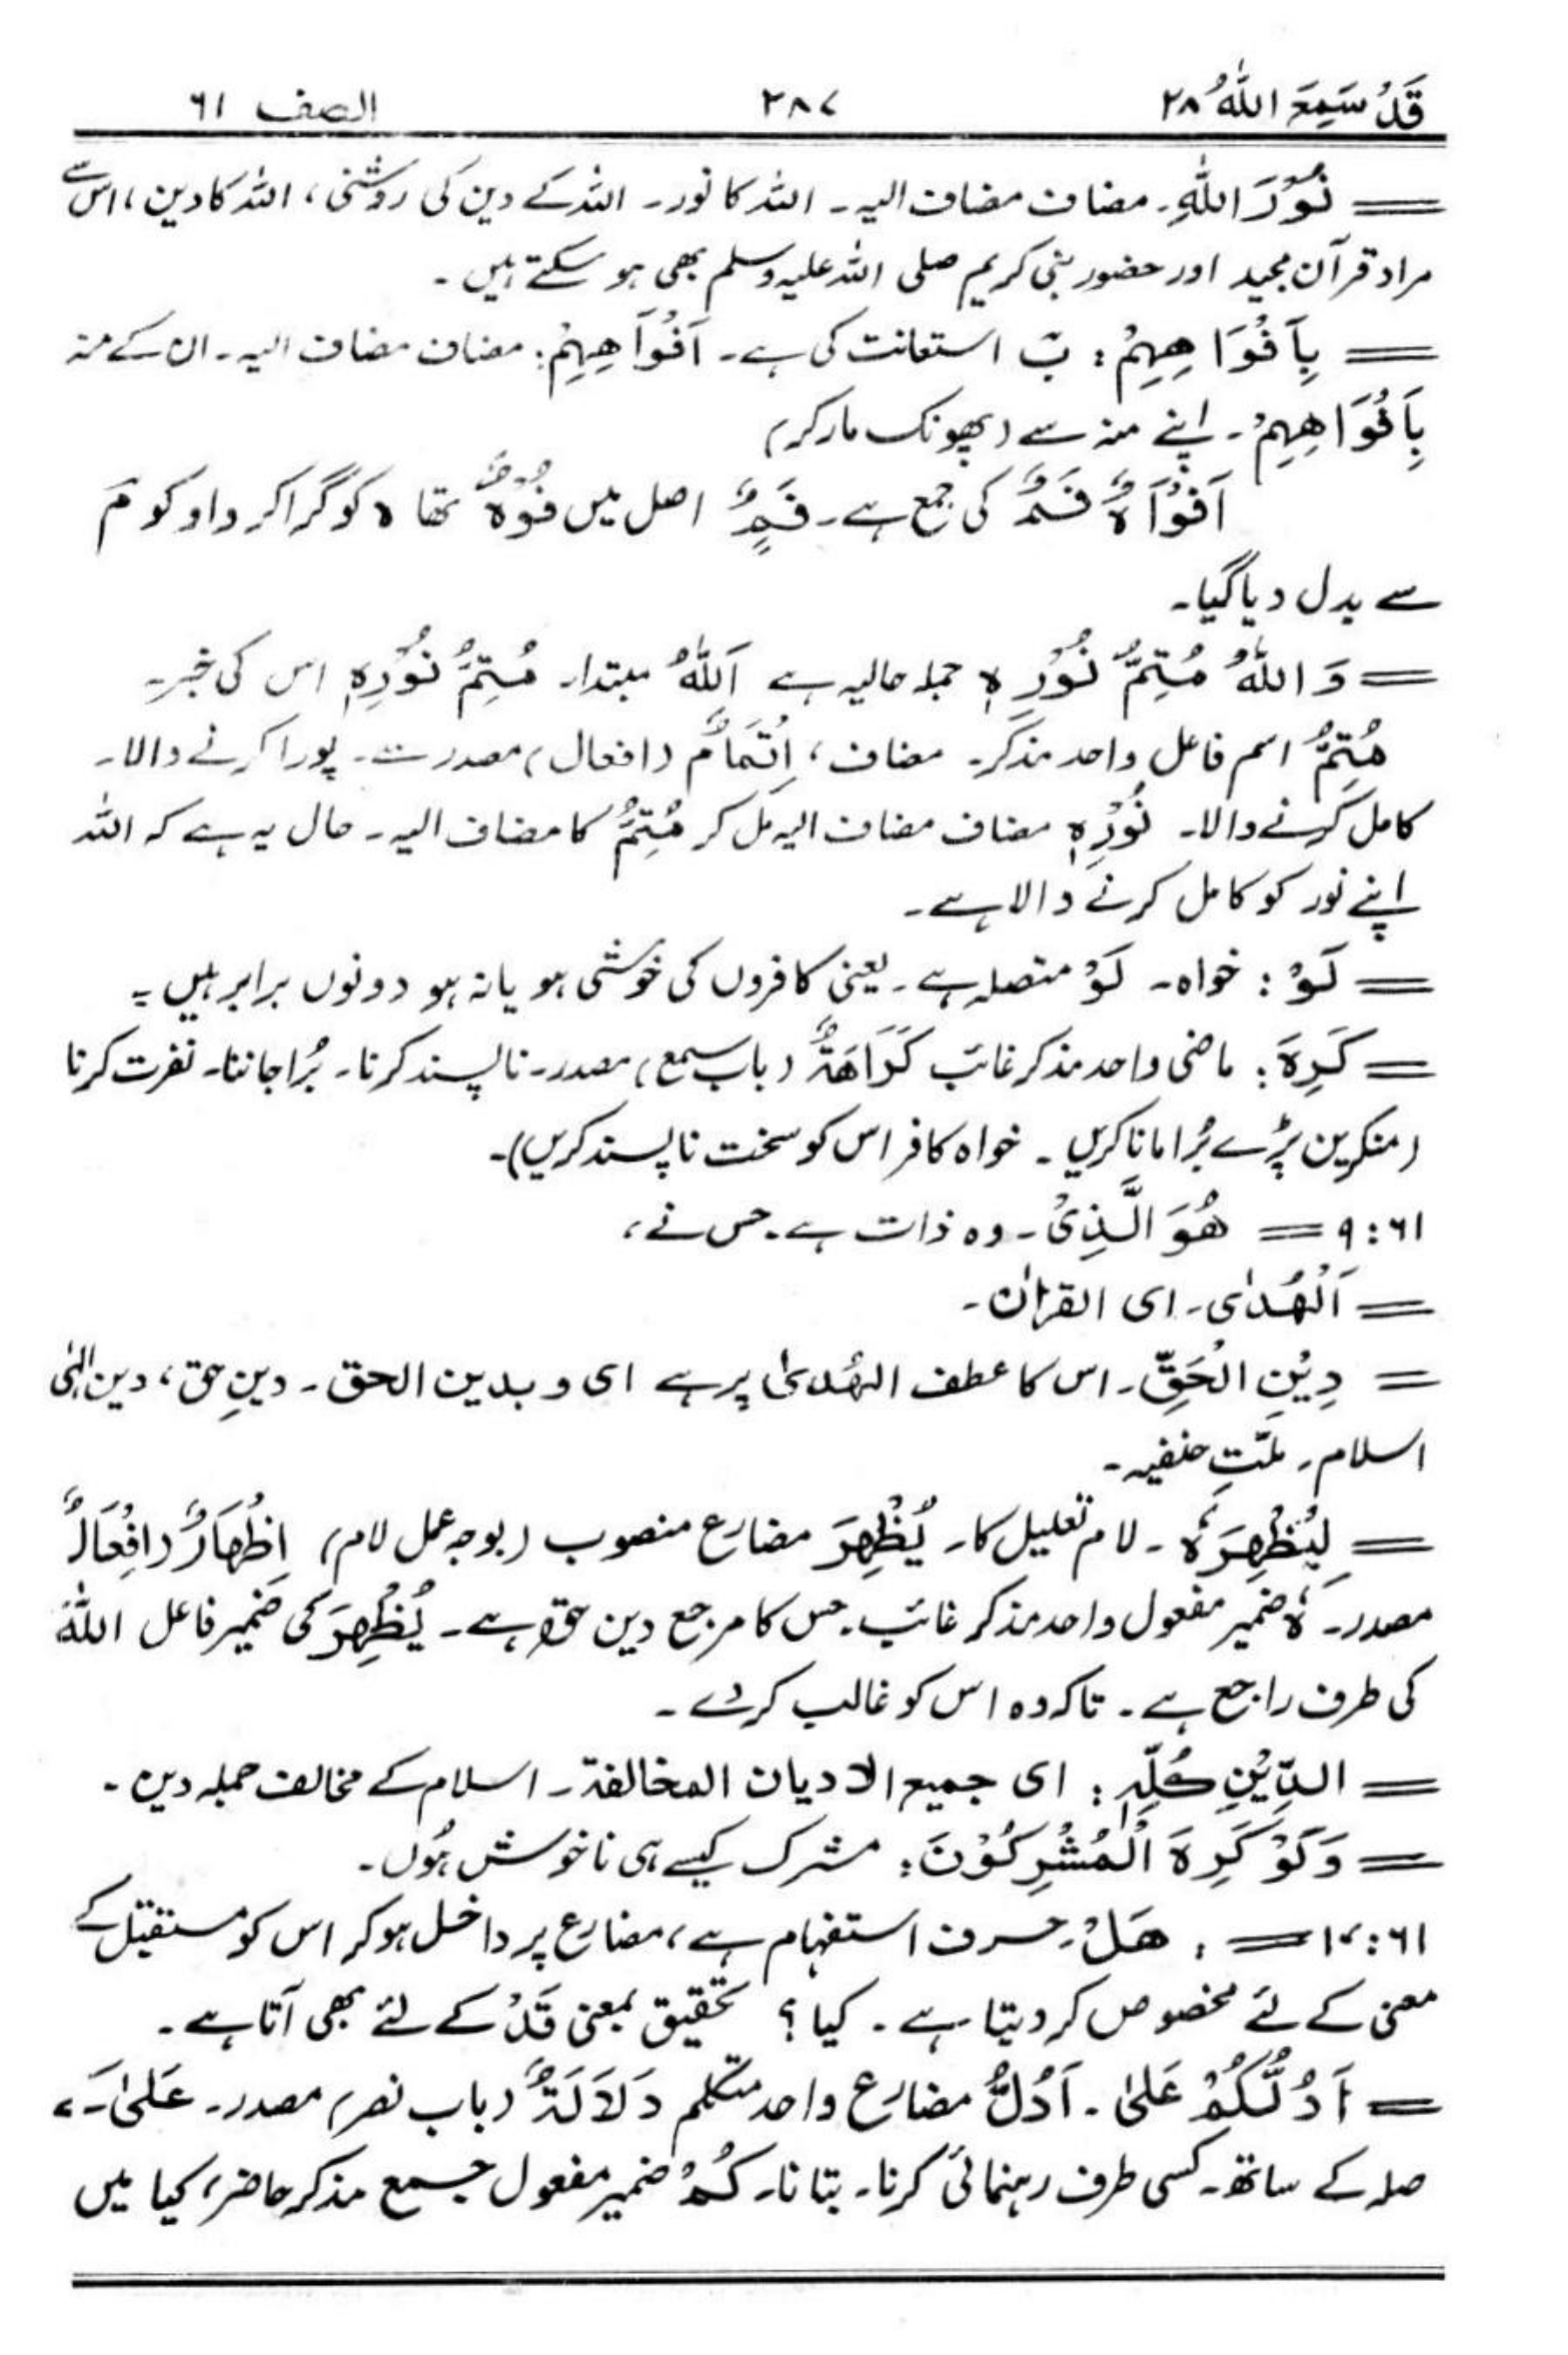 قَدْ سَمِعَ اللهُ ۲۸ ۲۸۷ الصف ۶۱
= نُوْرَ اللهِ۔ مضاف مضاف الیہ۔ اللہ کا نور۔ اللہ کے دین کی روشنی، اللہ کا دین، اس سے
مراد قرآن مجید اور حضور نبی کریم صلی اللہ علیہ وسلم بھی ہو سکتے ہیں۔
= بِاَفْوَاهِهِمْ: بَ استعانت کی ہے۔ اَفْوَاهِهِمْ: مضاف مضاف الیہ۔ ان کے منہ
بِاَفْوَاهِهِمْ۔ اپنے منہ سے (پھونک مار کر)
اَفْوَاهٌ فَمٌ کی جمع ہے۔ فَمٌ اصل میں فُوْهٌ تھا ہ کو گرا کر واو کو مَ
سے بدل دیا گیا۔
= وَ اللهُ مُتِمُّ نُوْرِهٖ جملہ حالیہ ہے اَللهُ مبتدا۔ مُتِمُّ نُوْرِهٖ اس کی خبر۔
مُتِمُّ اسم فاعل واحد مذکر۔ مضاف، اِتْمَامٌ (افعال) مصدر سے۔ پورا کرنے والا۔
کامل کرنے والا۔ نُوْرِهٖ مضاف مضاف الیہ مل کر مُتِمُّ کا مضاف الیہ۔ حال یہ ہے کہ اللہ
اپنے نور کو کامل کرنے والا ہے۔
= لَوْ: خواہ۔ لَوْ متصلہ ہے۔ یعنی کافروں کی خوشی ہو یا نہ ہو دونوں برابر ہیں۔
= کَرِهَ: ماضی واحد مذکر غائب کَرَاهَةٌ (باب سمع) مصدر۔ ناپسند کرنا۔ بُرا جاننا۔ نفرت کرنا
(منکرین پڑے بُرا مانا کریں۔ خواہ کافر اس کو سخت ناپسند کریں)۔
۶۱:۹ = هُوَ الَّذِیْ۔ وہ ذات ہے۔ جس نے،
= اَلْهُدٰی۔ ای القراٰن۔
= دِیْنِ الْحَقِّ۔ اس کا عطف الہُدیٰ پر ہے ای و بدین الحق۔ دینِ حق، دین الٰہی
اسلام۔ ملّتِ حنفیہ۔
= لِیُظْهِرَهٗ۔ لام تعلیل کا۔ یُظْهِرَ مضارع منصوب (بوجہ عمل لام) اِظْهَارٌ (اِفْعَالٌ)
مصدر۔ هٗ ضمیر مفعول واحد مذکر غائب۔ جس کا مرجع دین حق ہے۔ یُظْهِرَ کی ضمیر فاعل اللهُ
کی طرف راجع ہے۔ تاکہ وہ اس کو غالب کر دے۔
= الدِّیْنِ کُلِّهٖ: ای جمیع الادیان المخالفة۔ اسلام کے مخالف جملہ دین۔
= وَلَوْ کَرِهَ الْمُشْرِکُوْنَ: مشرک کیسے ہی ناخوش ہُوں۔
۶۱:۱۰ = : هَلْ۔ حرف استفہام ہے، مضارع پر داخل ہو کر اس کو مستقبل کے
معنی کے لئے مخصوص کر دیتا ہے۔ کیا؟ تحقیق بمعنی قَدْ کے لئے بھی آتا ہے۔
= اَدُلُّکُمْ عَلٰی۔ اَدُلُّ مضارع واحد متکلم دَلَالَةٌ (باب نصر) مصدر۔ عَلیٰ۔ کے
صلہ کے ساتھ۔ کسی طرف رہنمائی کرنا۔ بتانا۔ کُمْ ضمیر مفعول جمع مذکر حاضر، کیا میں